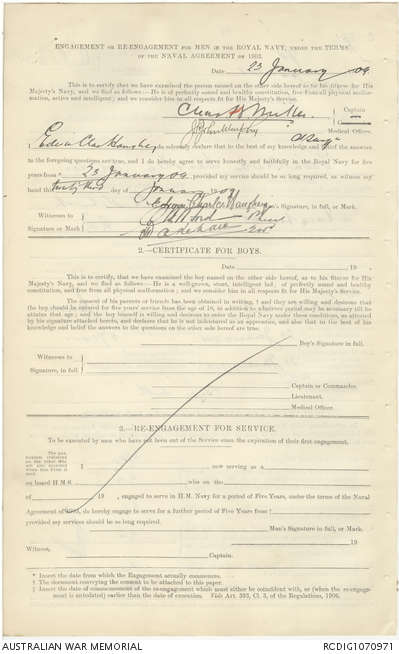 ENGAGEMENT OR RE-ENGAGEMENT FOR MEN IN THE ROYAL NAVY, UNDER THE TERMS
OF THE NAVAL AGREEMENT OF 1903.
Date 23 January 09.
This is to certify that we have examined the person named on the other side hereof as to his fitness for His
Majesty's Navy, and we find as follows:—He is of perfectly sound and healthy constitution, free from all physical malfor-
mation, active and intelligent; and we consider him in all respects fit for His Majesty's Service.
Captain
Medical Officer.
I, Edwin Chas do solemnly declare that to the best of my knowledge and belief the answers
to the foregoing questions are true, and I do hereby agree to serve honestly and faithfully in the Royal Navy for five
years from * 23 January 09, provided my service should be so long required, as witness my
hand this twenty third day of January 1909.
Edwin Charles Signature, in full, or Mark.
Witnesses to
Signature or Mark
2.—CERTIFICATE FOR BOYS.
Date 19 .
This is to certify, that we have examined the boy named on the other side hereof, as to his fitness for His
Majesty's Navy, and we find as follows:—He is a well-grown, stout, intelligent lad; of perfectly sound and healthy
constitution, and free from all physical malformation; and we consider him in all respects fit for His Majesty's Service.
The consent of his parents or friends has been obtained in writing, † and they are willing and desirous that
the boy should be entered for five years' service from the age of 18, in addition to whatever period may be necessary till he
attains that age; and the boy himself is willing and desirous to enter the Royal Navy under these conditions, as attested
by his signature attached hereto, and declares that he is not indentured as an apprentice, and also that to the best of his
knowledge and belief the answers to the questions on the other side hereof are true.
Boy's Signature in full.
Witnesses to
Signature, in full
Captain or Commander.
Lieutenant.
Medical Officer.
3.—RE-ENGAGEMENT FOR SERVICE.
To be executed by men who have not been out of the Service since the expiration of their first engagement.
I now serving as a
on board H.M.S. who on the
of 19 , engaged to serve in H.M. Navy for a period of Five Years, under the terms of the Naval
Agreement of 1903, do hereby engage to serve for a further period of Five Years from ‡
provided my services should be so long required.
Man's Signature in full, or Mark.
19
Witness,
Captain.
* Insert the date from which the Engagement actually commences.
† The document conveying the consent to be attached to this paper.
‡ Insert date of commencement of the re-engagement which must either be coincident with, or (when the re-engage-
ment is antedated) earlier than the date of execution. Vide Art. 393, Cl. 3, of the Regulations, 1906.
AUSTRALIAN WAR MEMORIAL
RCDIG1070971